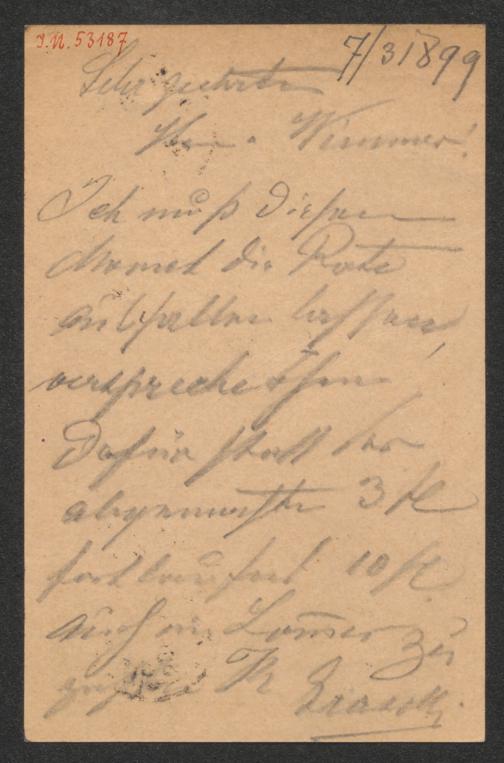 J.N. 53187
7/3 1899
Sehr geehrter
Herr Wimmer!
Ich muß diesen
Monat die Rate
ausfallen lassen,
verspreche Ihnen
Dafür statt der
abgemachten 3 fl
fortlaufend 10 fl
auch im Sommer zu